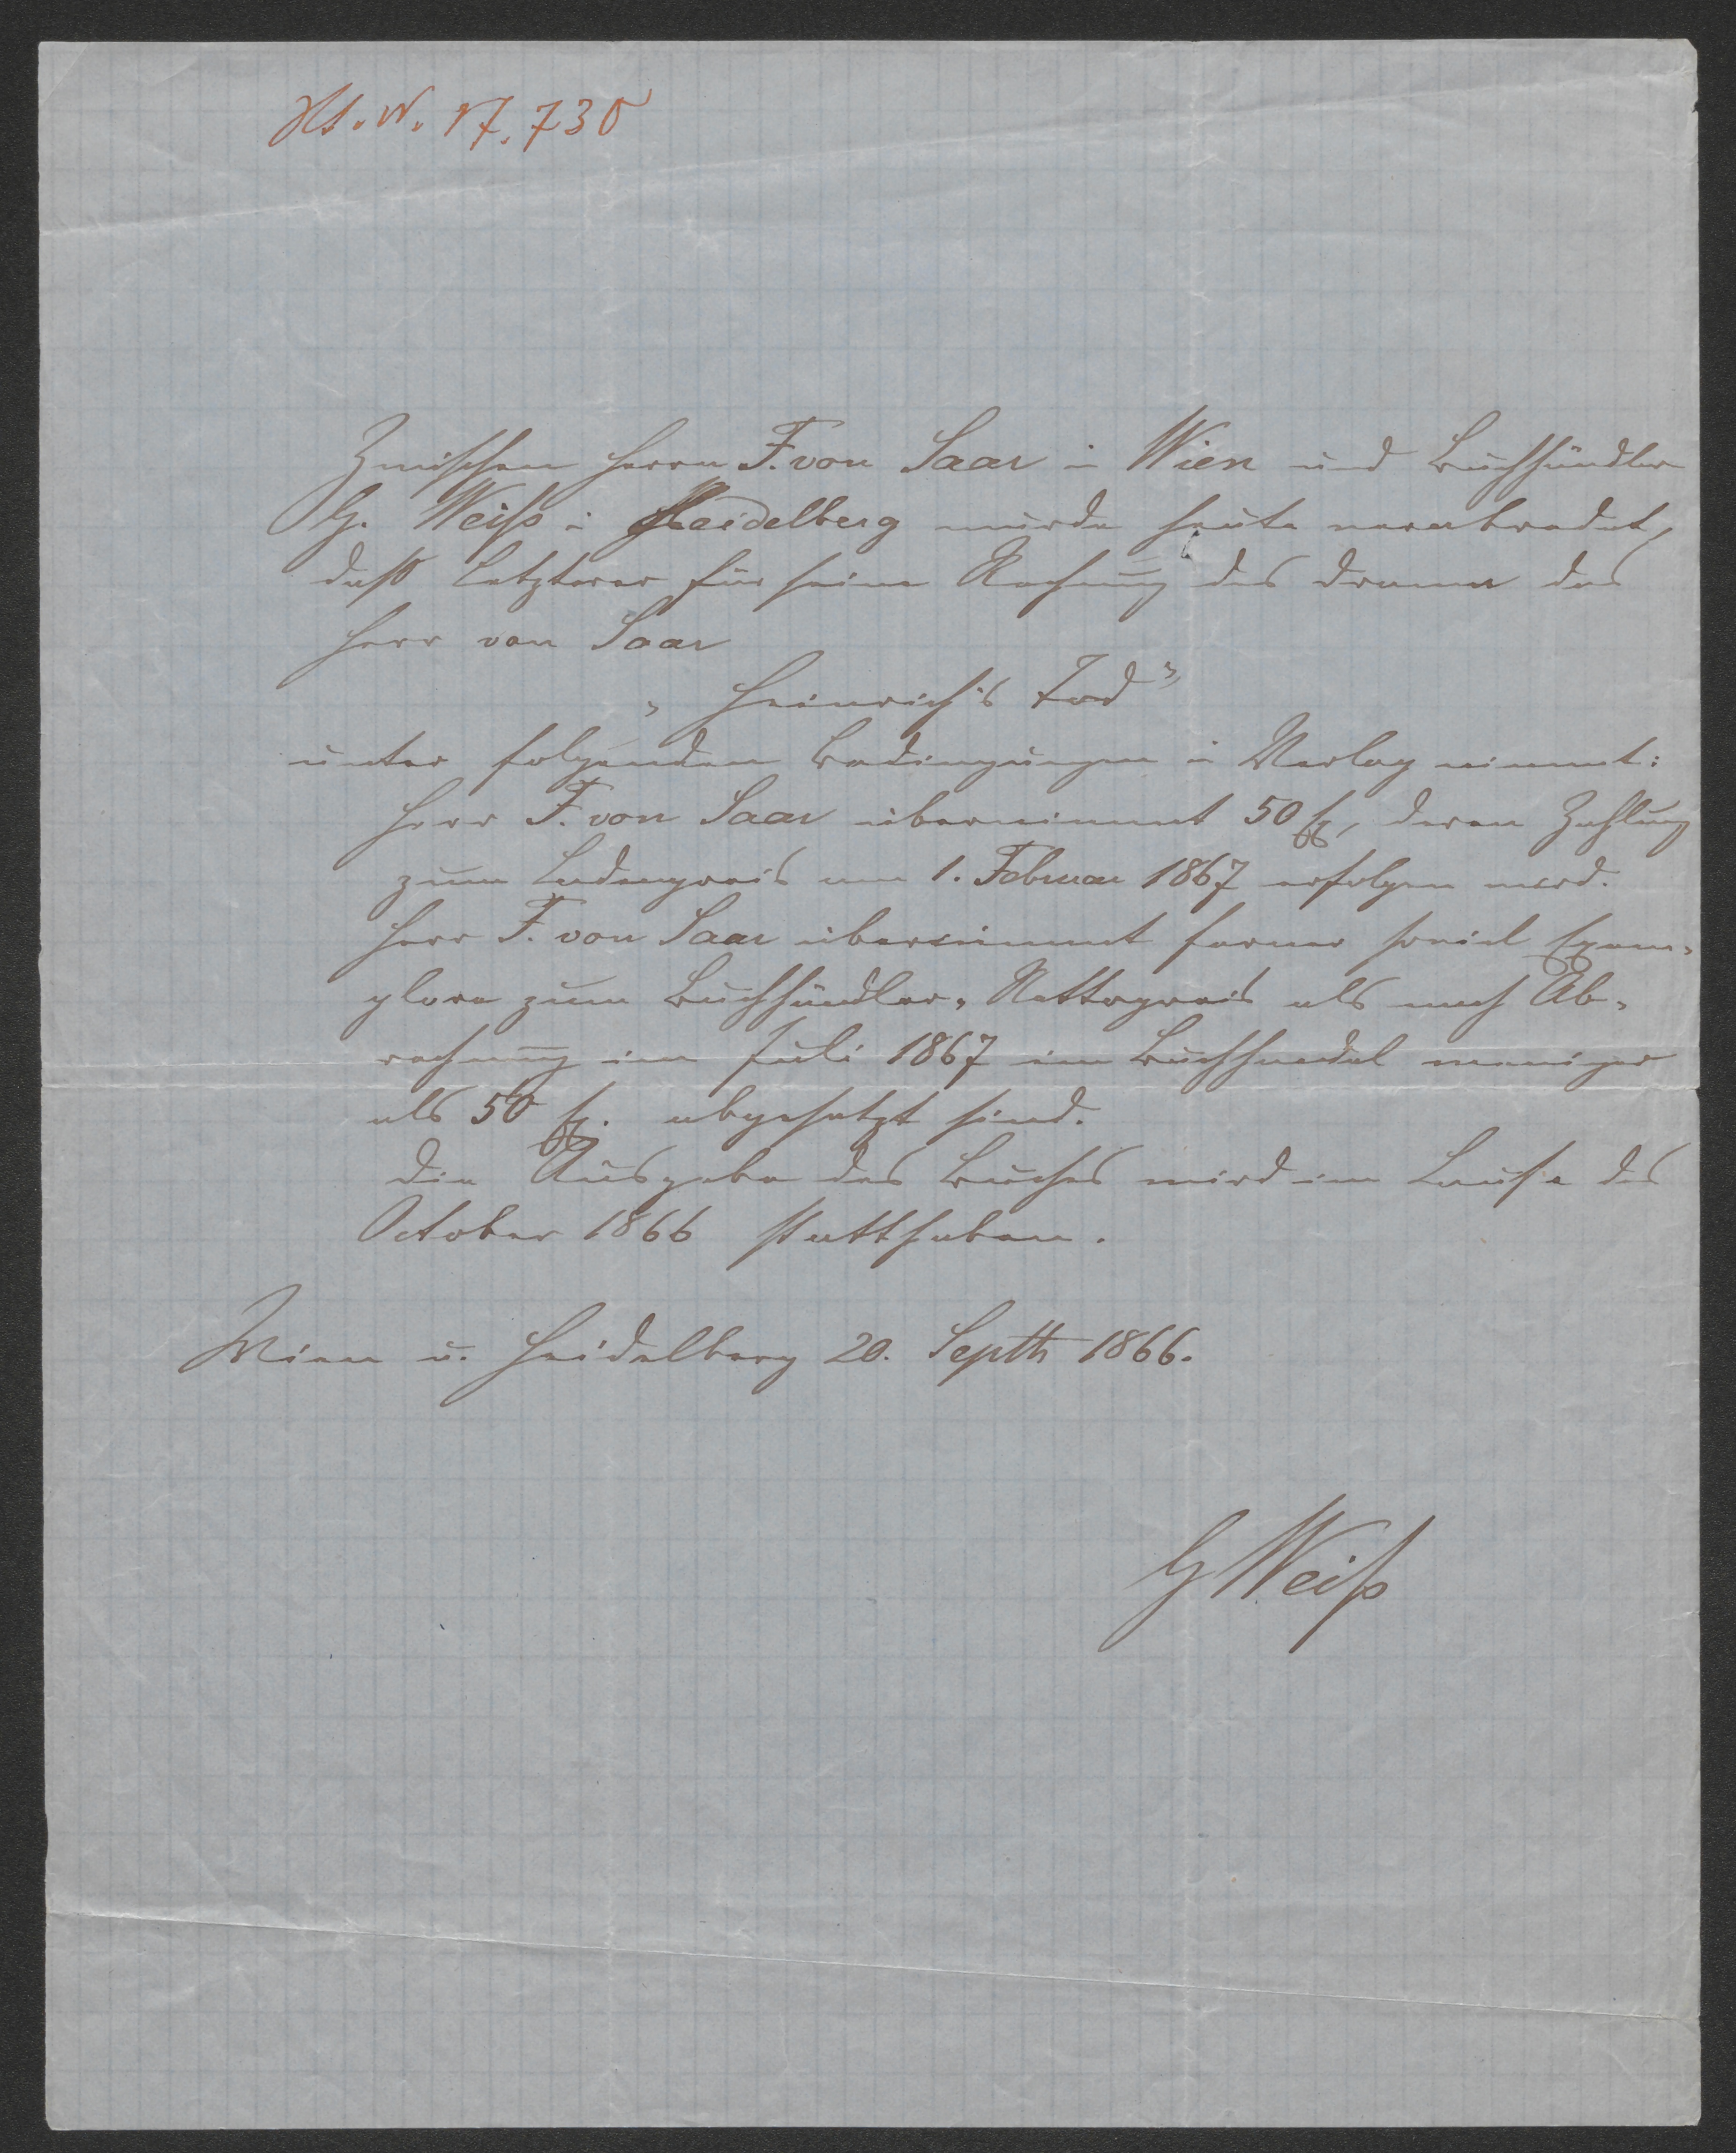 Zwischen Herrn F. von Saar in Wien und Buchhändler
G. Weiß in Heidelberg wurde heute verabredet,
daß Letzterer für seine Rechnung das Drama des
Herr von Saar
„Heinrich's Tod"
unter folgenden Bedingungen in Verlag nimmt:
Herr F. von Saar übernimmt 50 Ex, deren Zahlung
zum Ladenpreis am 1. Februar 1867 erfolgen wird.
Herr F. von Saar übernimmt ferner soviel Exem-
plare zum Buchhändler-Nettopreis als nach Ab-
rechnung im Juli 1867 im Buchhandel weniger
als 50 Ex. abgesetzt sind.
Die Ausgabe des Buches wird im Laufe des
October 1866 statthaben.
Wien u. Heidelberg 20. Septb 1866.
G Weiß